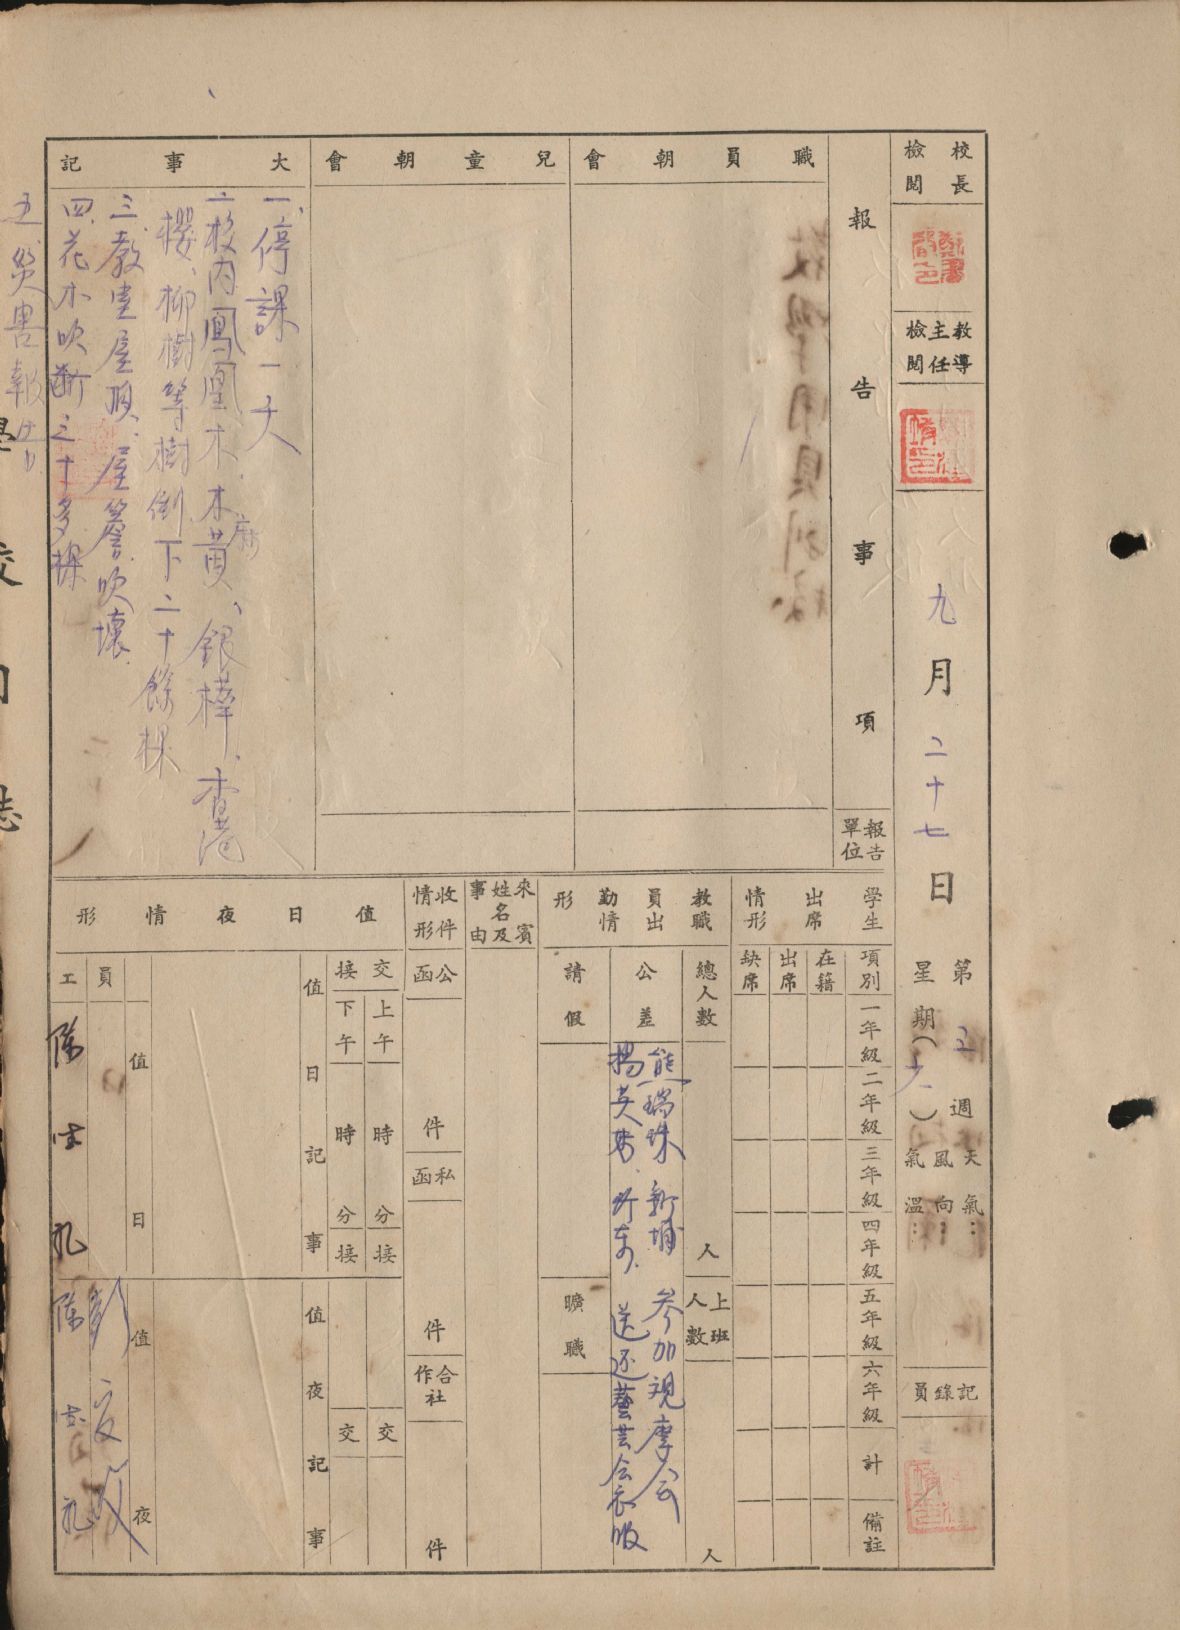 校長
檢閱
教導
主任
檢閱
九月二十七日
第 週
星期(六)
天氣:
風向:
氣溫:
記錄員
報告事項
報告
單位
職員朝會
兒童朝會
大事記
一、停課一天
二、校內鳳凰木、木麻黃、銀樺、香港
櫻、柳樹等樹倒下二十餘棵
三、教室屋頂、屋簷吹壞
四、花木吹斷三十多棵
五、災害報告
學生出席情形
項別
一年級
二年級
三年級
四年級
五年級
六年級
計
備註
在籍
出席
缺席
教職員出勤情形
總人數
人
上班
人數
人
公差
熊瑞珠 新埔 參加視摩会
楊英 送还藝芸会衣服
請假
曠職
來賓
姓名及
事由
收件
情形
公函
件
私函
件
合作社
件
值日夜情形
交接
上午 時 分 接
交
下午 時 分 接
交
值日記事
值夜記事
值日
值夜
員
工
校
誌